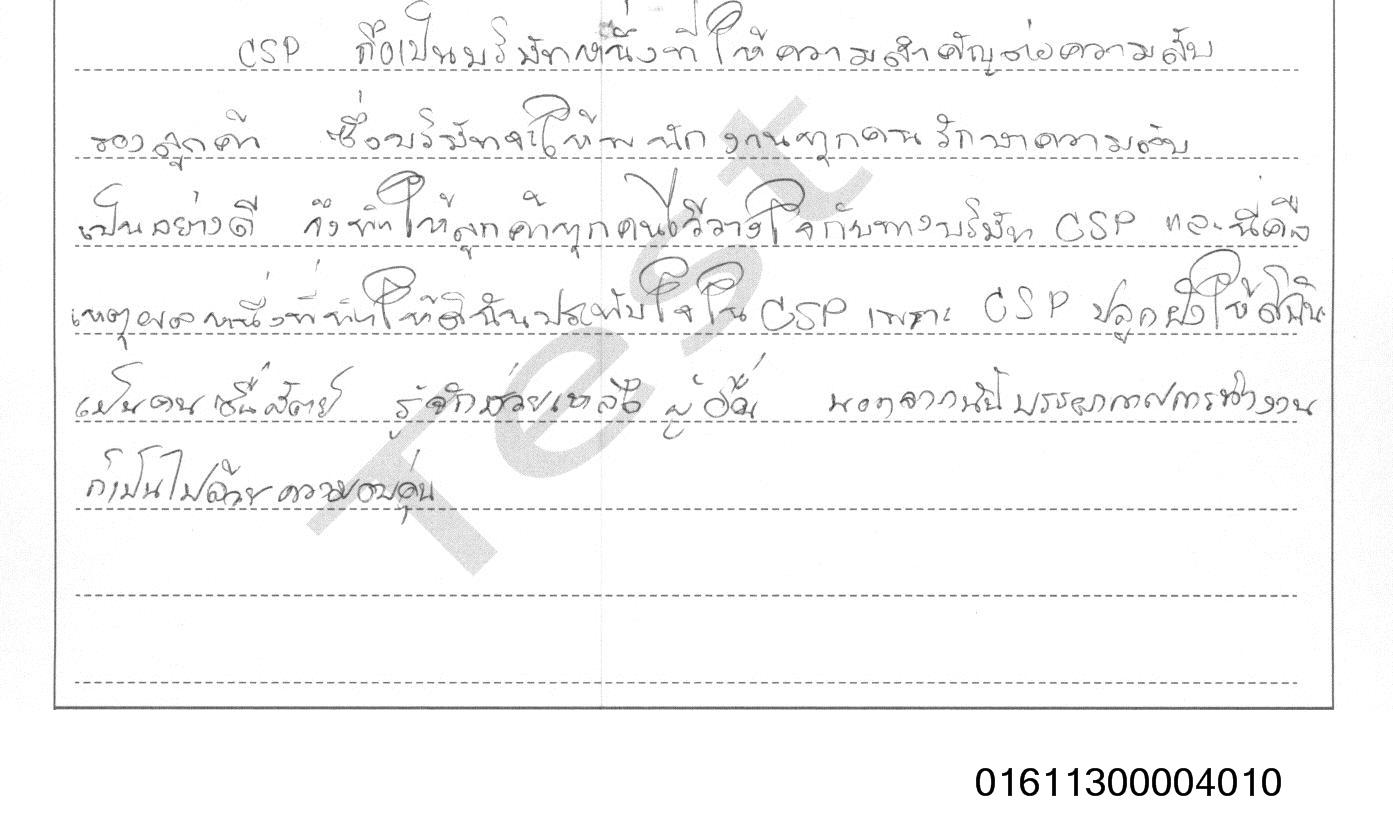 CSP ถือเป็นบริษัทหนึ่งที่ให้ความสำคัญต่อความลับ
ของลูกค้า ซึ่งบริษัทจะให้พนักงานทุกคนรักษาความลับ
เป็นอย่างดี จึงทำให้ลูกค้าทุกคนไว้วางใจกับทางบริษัท CSP และนี่คือ
เหตุผลหนึ่งที่ทำให้ดิฉันประทับใจใน CSP เพราะ CSP ปลูกฝังให้ดิฉัน
เป็นคนซื่อสัตย์ รู้จักช่วยเหลือผู้อื่น นอกจากนี้บรรยากาศการทำงาน
ก็เป็นไปด้วยความอบอุ่น
Test
01611300004010